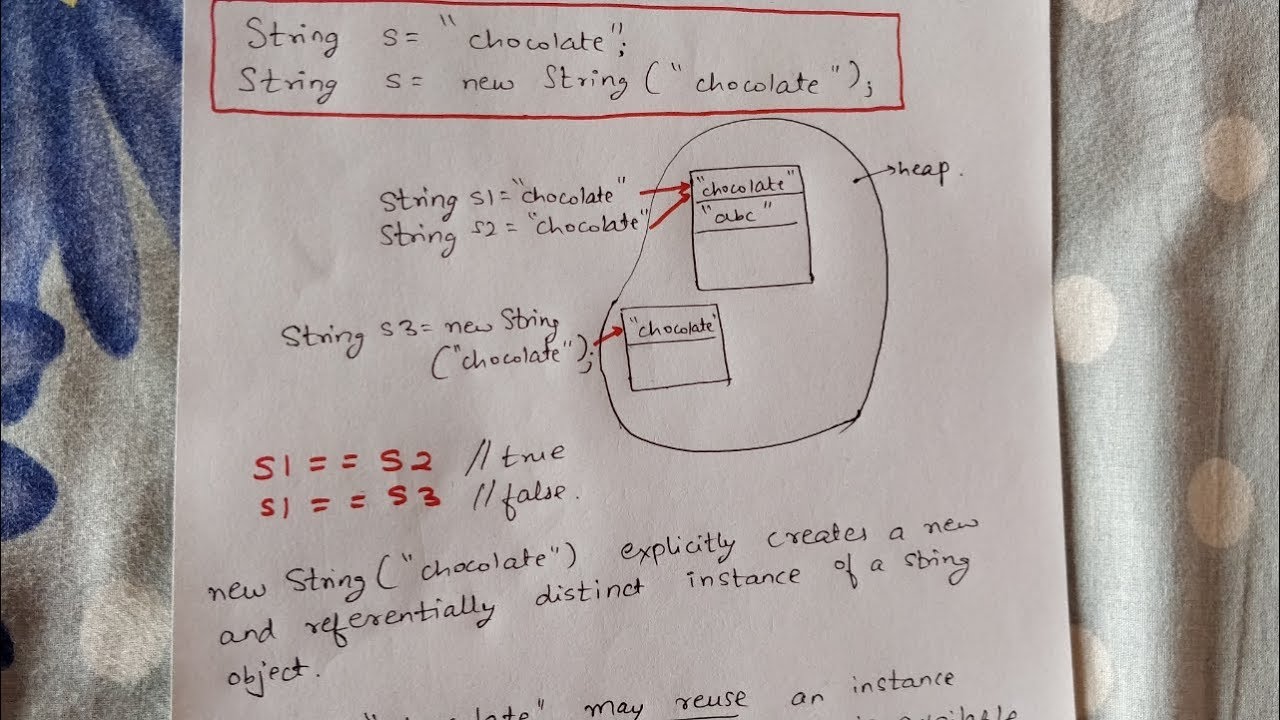 String s= "chocolate";
String s= new String ("chocolate");
String s1= "chocolate"
String s2 = "chocolate"
"chocolate"
"abc"
heap.
String s3= new String
("chocolate");
"chocolate"
S1 == S2 // true
S1 == S3 // false.
new String ("chocolate") explicitly creates a new
and referentially distinct instance of a string
object.
may reuse an instance